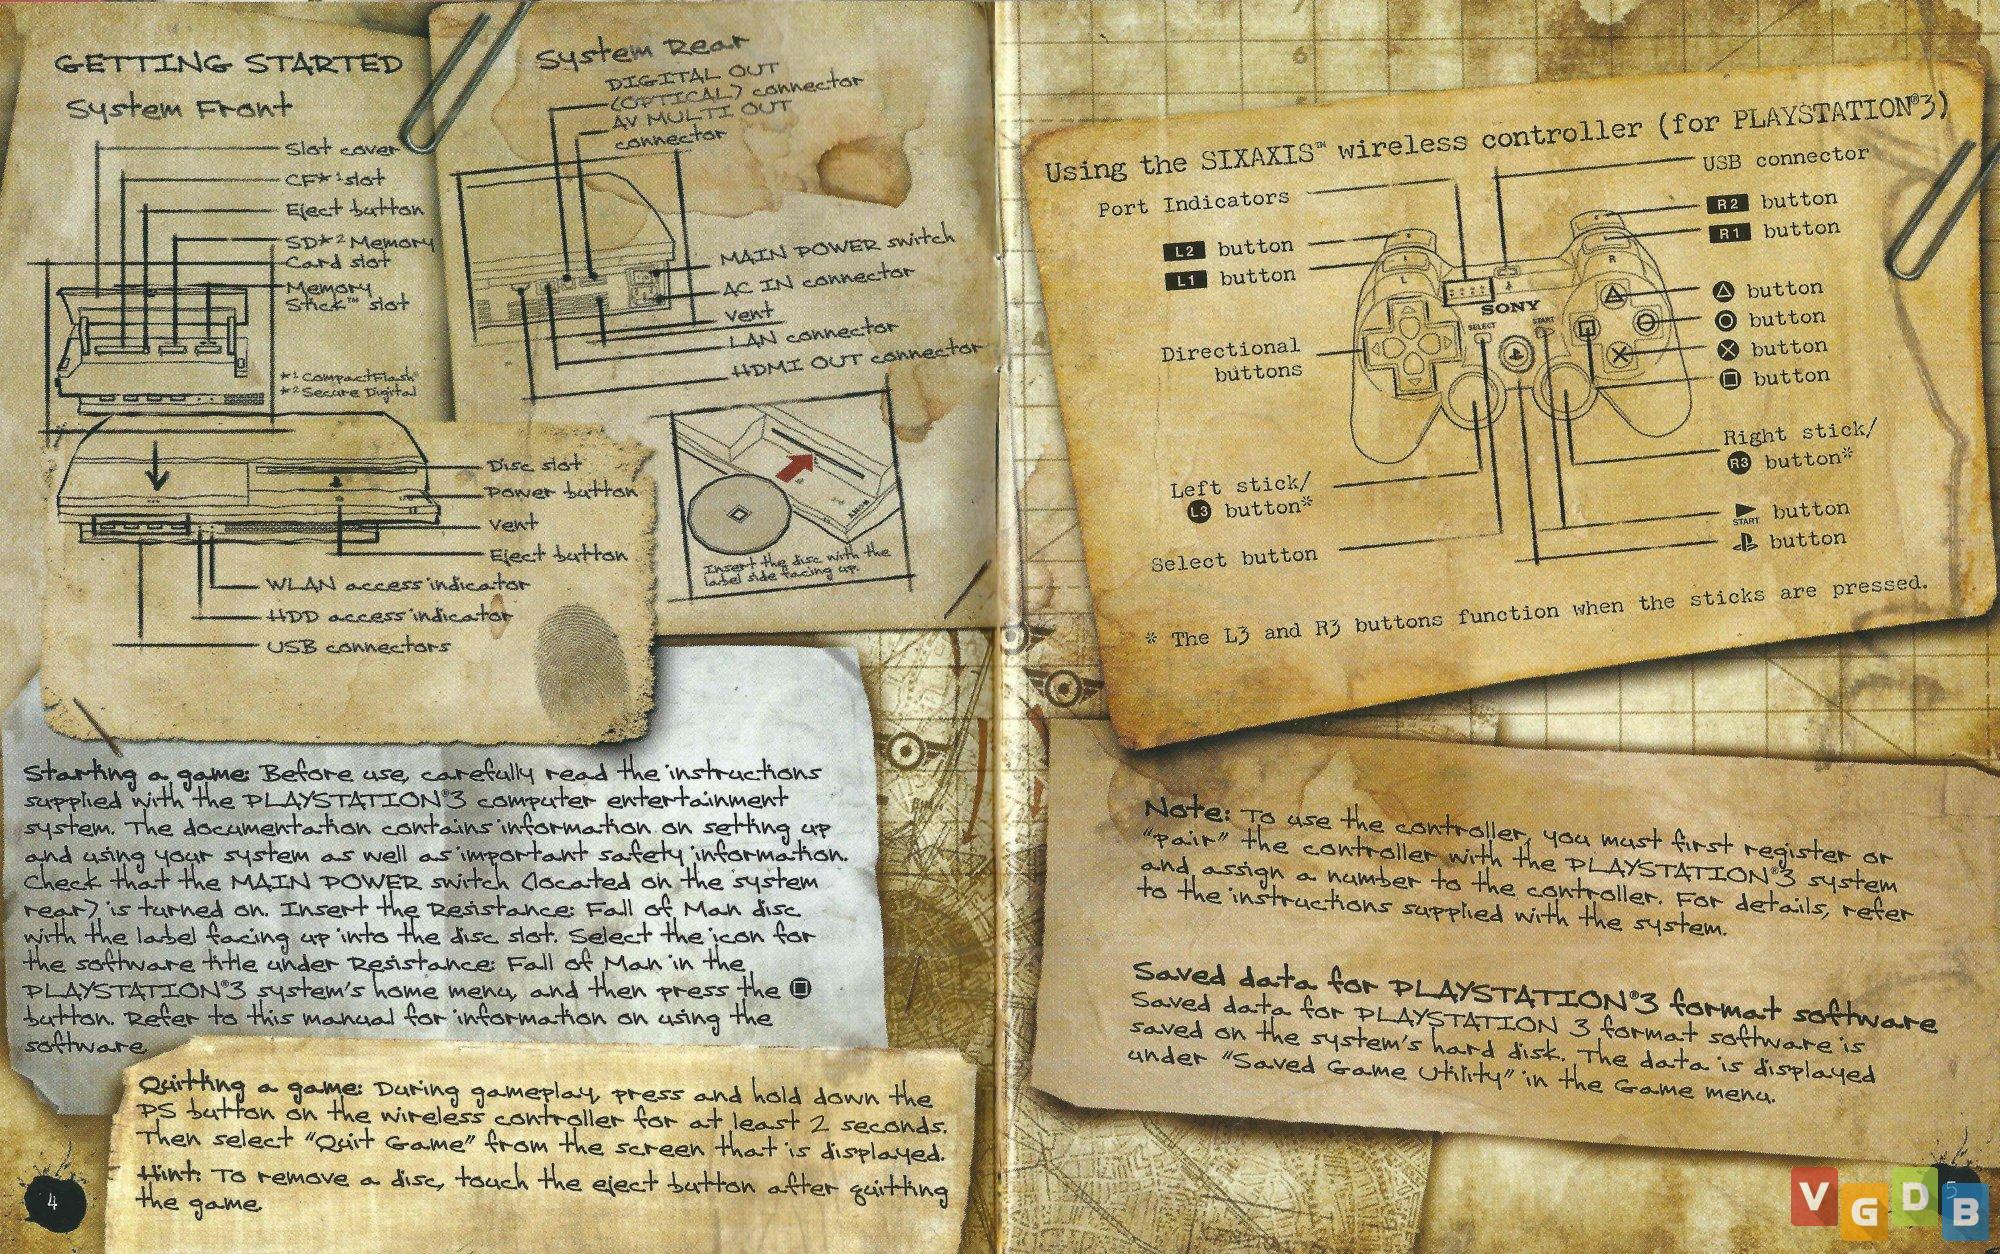 GETTING STARTED
System Front
Slot cover
CF*1 slot
Eject button
SD*2 Memory
Card slot
Memory
Stick™ slot
*1 CompactFlash®
*2 Secure Digital
Disc slot
Power button
Vent
Eject button
WLAN access indicator
HDD access indicator
USB connectors
System Rear
DIGITAL OUT
(OPTICAL) connector
AV MULTI OUT
connector
MAIN POWER switch
AC IN connector
Vent
LAN connector
HDMI OUT connector
Insert the disc with the
label side facing up.
Starting a game: Before use, carefully read the instructions
supplied with the PLAYSTATION®3 computer entertainment
system. The documentation contains information on setting up
and using your system as well as important safety information.
Check that the MAIN POWER switch (located on the system
rear) is turned on. Insert the Resistance: Fall of Man disc
with the label facing up into the disc slot. Select the icon for
the software title under Resistance: Fall of Man in the
PLAYSTATION®3 system's home menu, and then press the □
button. Refer to this manual for information on using the
software.
Quitting a game: During gameplay, press and hold down the
PS button on the wireless controller for at least 2 seconds.
Then select "Quit Game" from the screen that is displayed.
Hint: To remove a disc, touch the eject button after quitting
the game.
4
Using the SIXAXIS™ wireless controller (for PLAYSTATION®3)
Port Indicators
USB connector
L2 button
L1 button
R2 button
R1 button
L
R
SONY
SELECT
START
△ button
○ button
✕ button
□ button
Directional
buttons
Right stick/
R3 button*
Left stick/
L3 button*
Select button
START button
PS button
* The L3 and R3 buttons function when the sticks are pressed.
Note: To use the controller, you must first register or
"pair" the controller with the PLAYSTATION®3 system
and assign a number to the controller. For details, refer
to the instructions supplied with the system.
Saved data for PLAYSTATION®3 format software
Saved data for PLAYSTATION 3 format software is
saved on the system's hard disk. The data is displayed
under "Saved Game Utility" in the Game menu.
5
VGDB